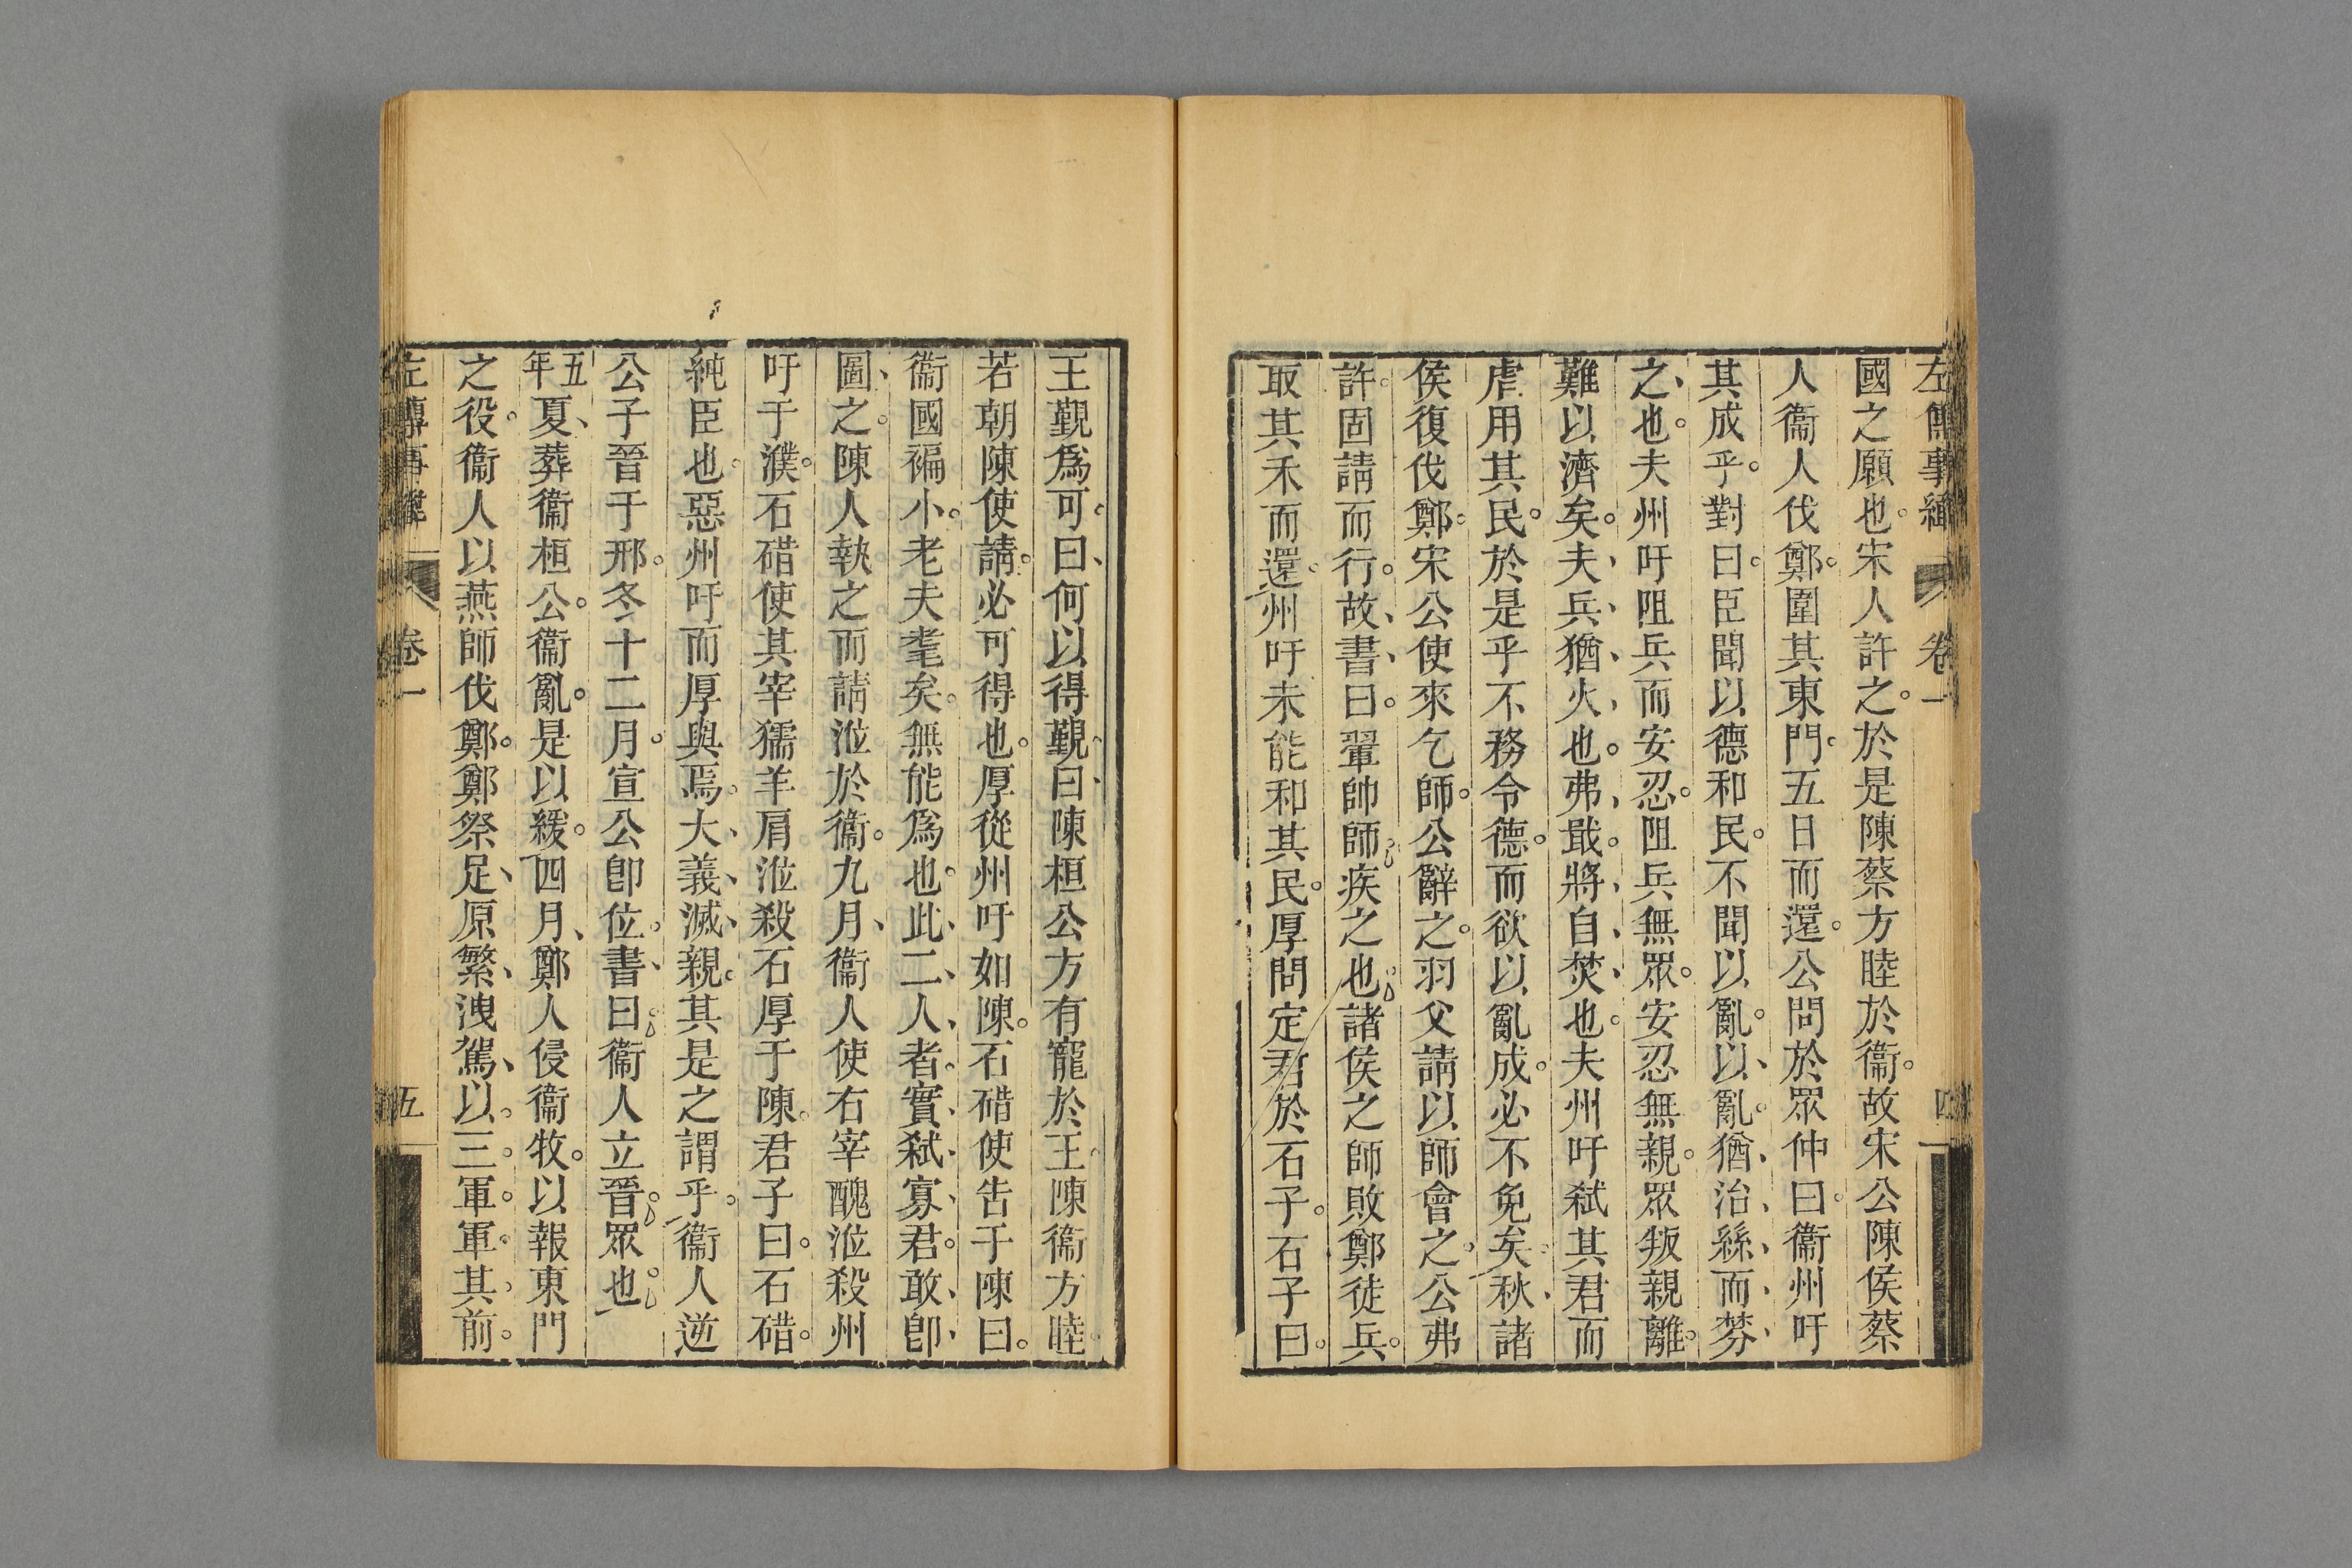 左傳事緯 卷一 四
國之願也。宋人許之。於是陳蔡方睦於衞。故宋公陳侯蔡
人衞人伐鄭。圍其東門。五日而還。公問於眾仲曰。衞州吁
其成乎。對曰。臣聞以德和民。不聞以亂。以、亂。猶、治、絲、而、棼、
之、也。夫州吁阻兵而安忍。阻兵無眾。安忍無親。眾叛親離。
難以濟矣。夫、兵、猶、火、也。弗、戢。將、自、焚、也。夫州吁弒其君而
虐用其民。於是乎不務令德。而欲以亂成。必不免矣。秋、諸
侯復伐鄭。宋公使來乞師。公辭之。羽父請以師會之。公弗
許。固請而行。故、書、曰。翬帥師。疾之也。諸侯之師敗鄭徒兵。
取其禾而還。州吁未能和其民。厚問定君於石子。石子曰。
王覲爲可。曰、何以得覲。曰、陳桓公方有寵於王。陳衞方睦。
若朝陳使請。必可得也。厚從州吁如陳。石碏使告于陳曰。
衞國褊小。老夫耄矣。無能爲也。此、二、人、者。實、弒、寡、君。敢、卽、
圖、之。陳人執之而請涖於衞。九月、衞人使右宰醜涖殺州
吁于濮。石碏使其宰獳羊肩涖殺石厚于陳。君子曰。石碏。
純臣也。惡州吁而厚與焉。大、義、滅、親。其是之謂乎。衞人逆
公子晉于邢。冬十二月。宣公卽位。書、曰。衞人立晉。眾也。
五年夏、葬衞桓公。衞亂。是以緩。四月、鄭人侵衞牧。以報東門
之役。衞人以燕師伐鄭。鄭祭足、原繁、洩駕、以。三。軍。軍。其。前。
左傳事緯 卷一 五